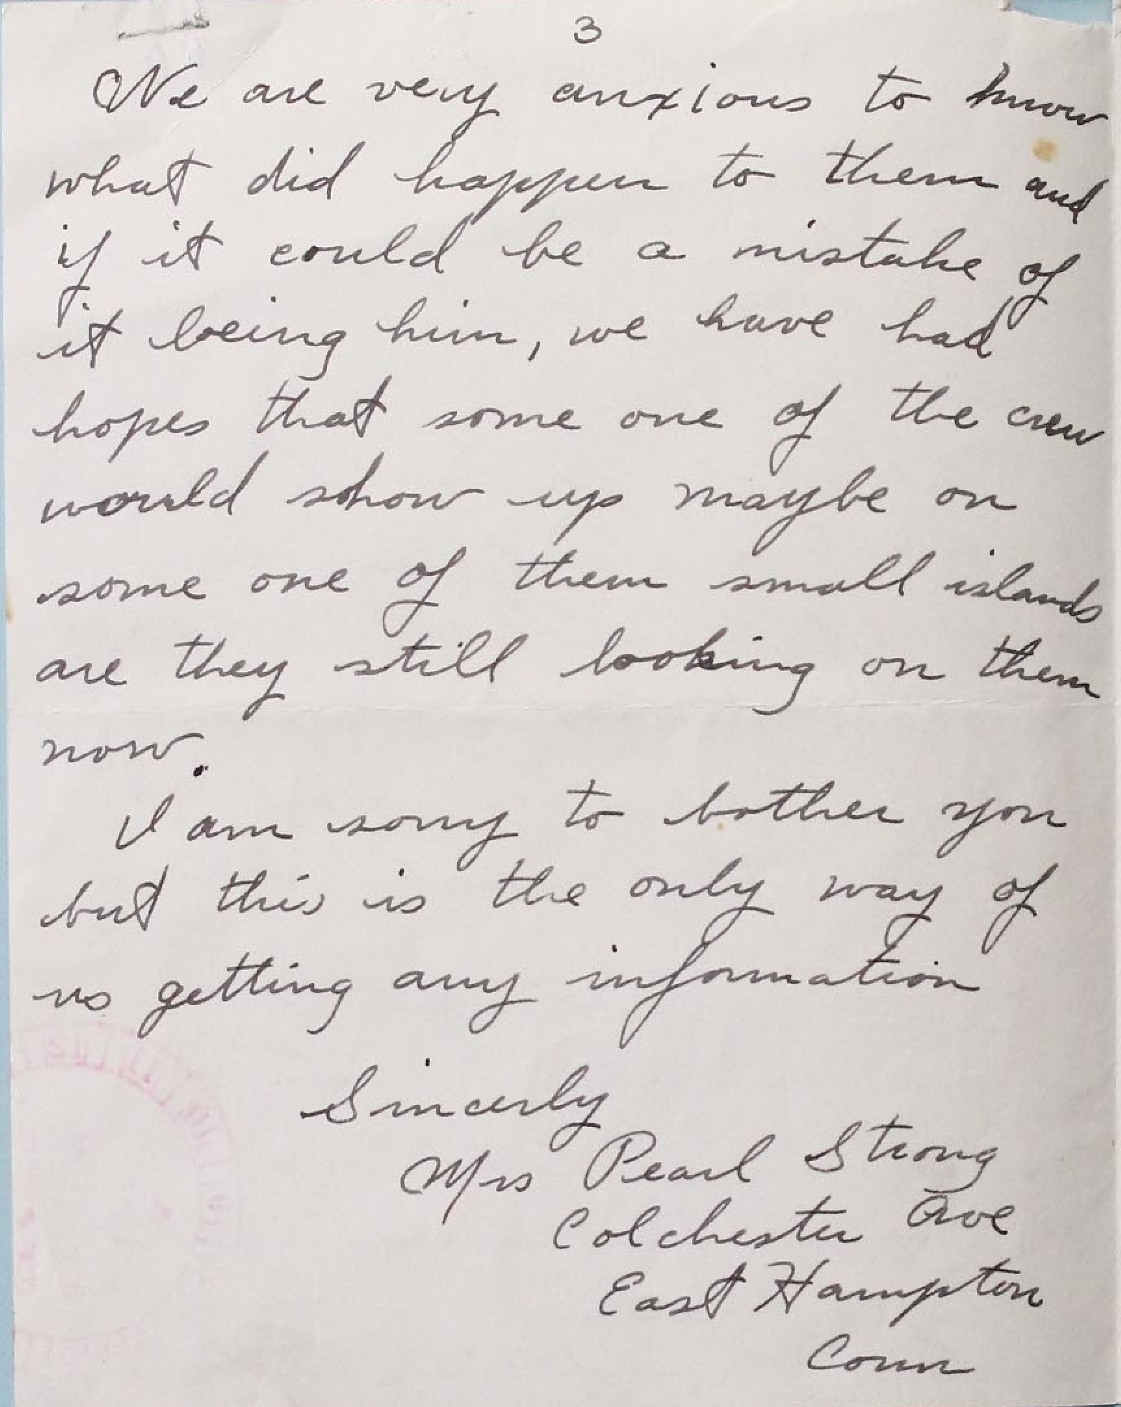 3
We are very anxious to know
what did happen to them and
if it could be a mistake of
it being him, we have had
hopes that some one of the crew
would show up maybe on
some one of them small islands
are they still looking on them
now.
I am sorry to bother you
but this is the only way of
us getting any information
Sincerly
Mrs Pearl Strong
Colchester Ave
East Hampton
Conn